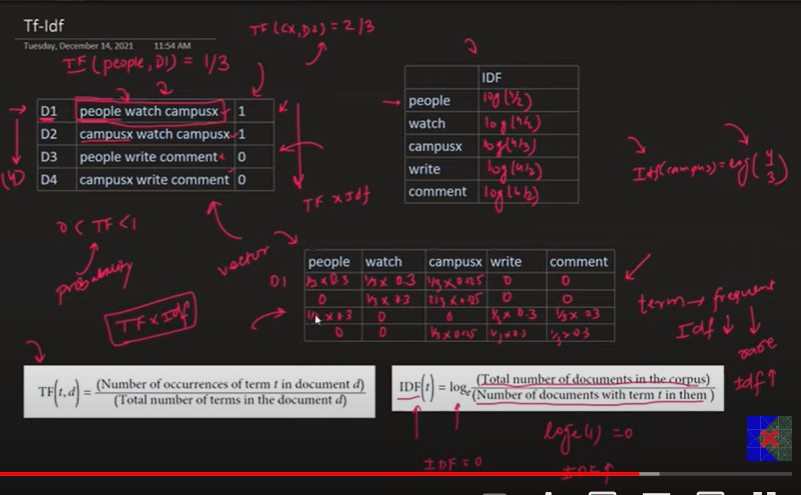 Tf-Idf
Tuesday, December 14, 2021 11:54 AM
TF(people, D1) = 1/3
TF(CX, D2) = 2/3
D1 people watch campusx 1
D2 campusx watch campusx 1
D3 people write comment 0
D4 campusx write comment 0
(4)
TF x Idf
0 < TF < 1
probability
vector
TF x Idf
IDF
people log(4/2)
watch log(4/2)
campusx log(4/3)
write log(4/2)
comment log(4/2)
Idf(campus) = log(4/3)
people watch campusx write comment
D1 1/3 x 0.3 1/3 x 0.3 1/3 x 0.125 0 0
0 1/3 x 0.3 2/3 x 0.125 0 0
1/3 x 0.3 0 0 1/3 x 0.3 1/3 x 0.3
0 0 1/3 x 0.125 1/3 x 0.3 1/3 x 0.3
term → frequent
Idf ↓
rare
Idf ↑
TF(t,d) = (Number of occurrences of term t in document d) / (Total number of terms in the document d)
IDF(t) = logₑ (Total number of documents in the corpus) / (Number of documents with term t in them)
loge(1) = 0
IDF = 0
IDF ↑